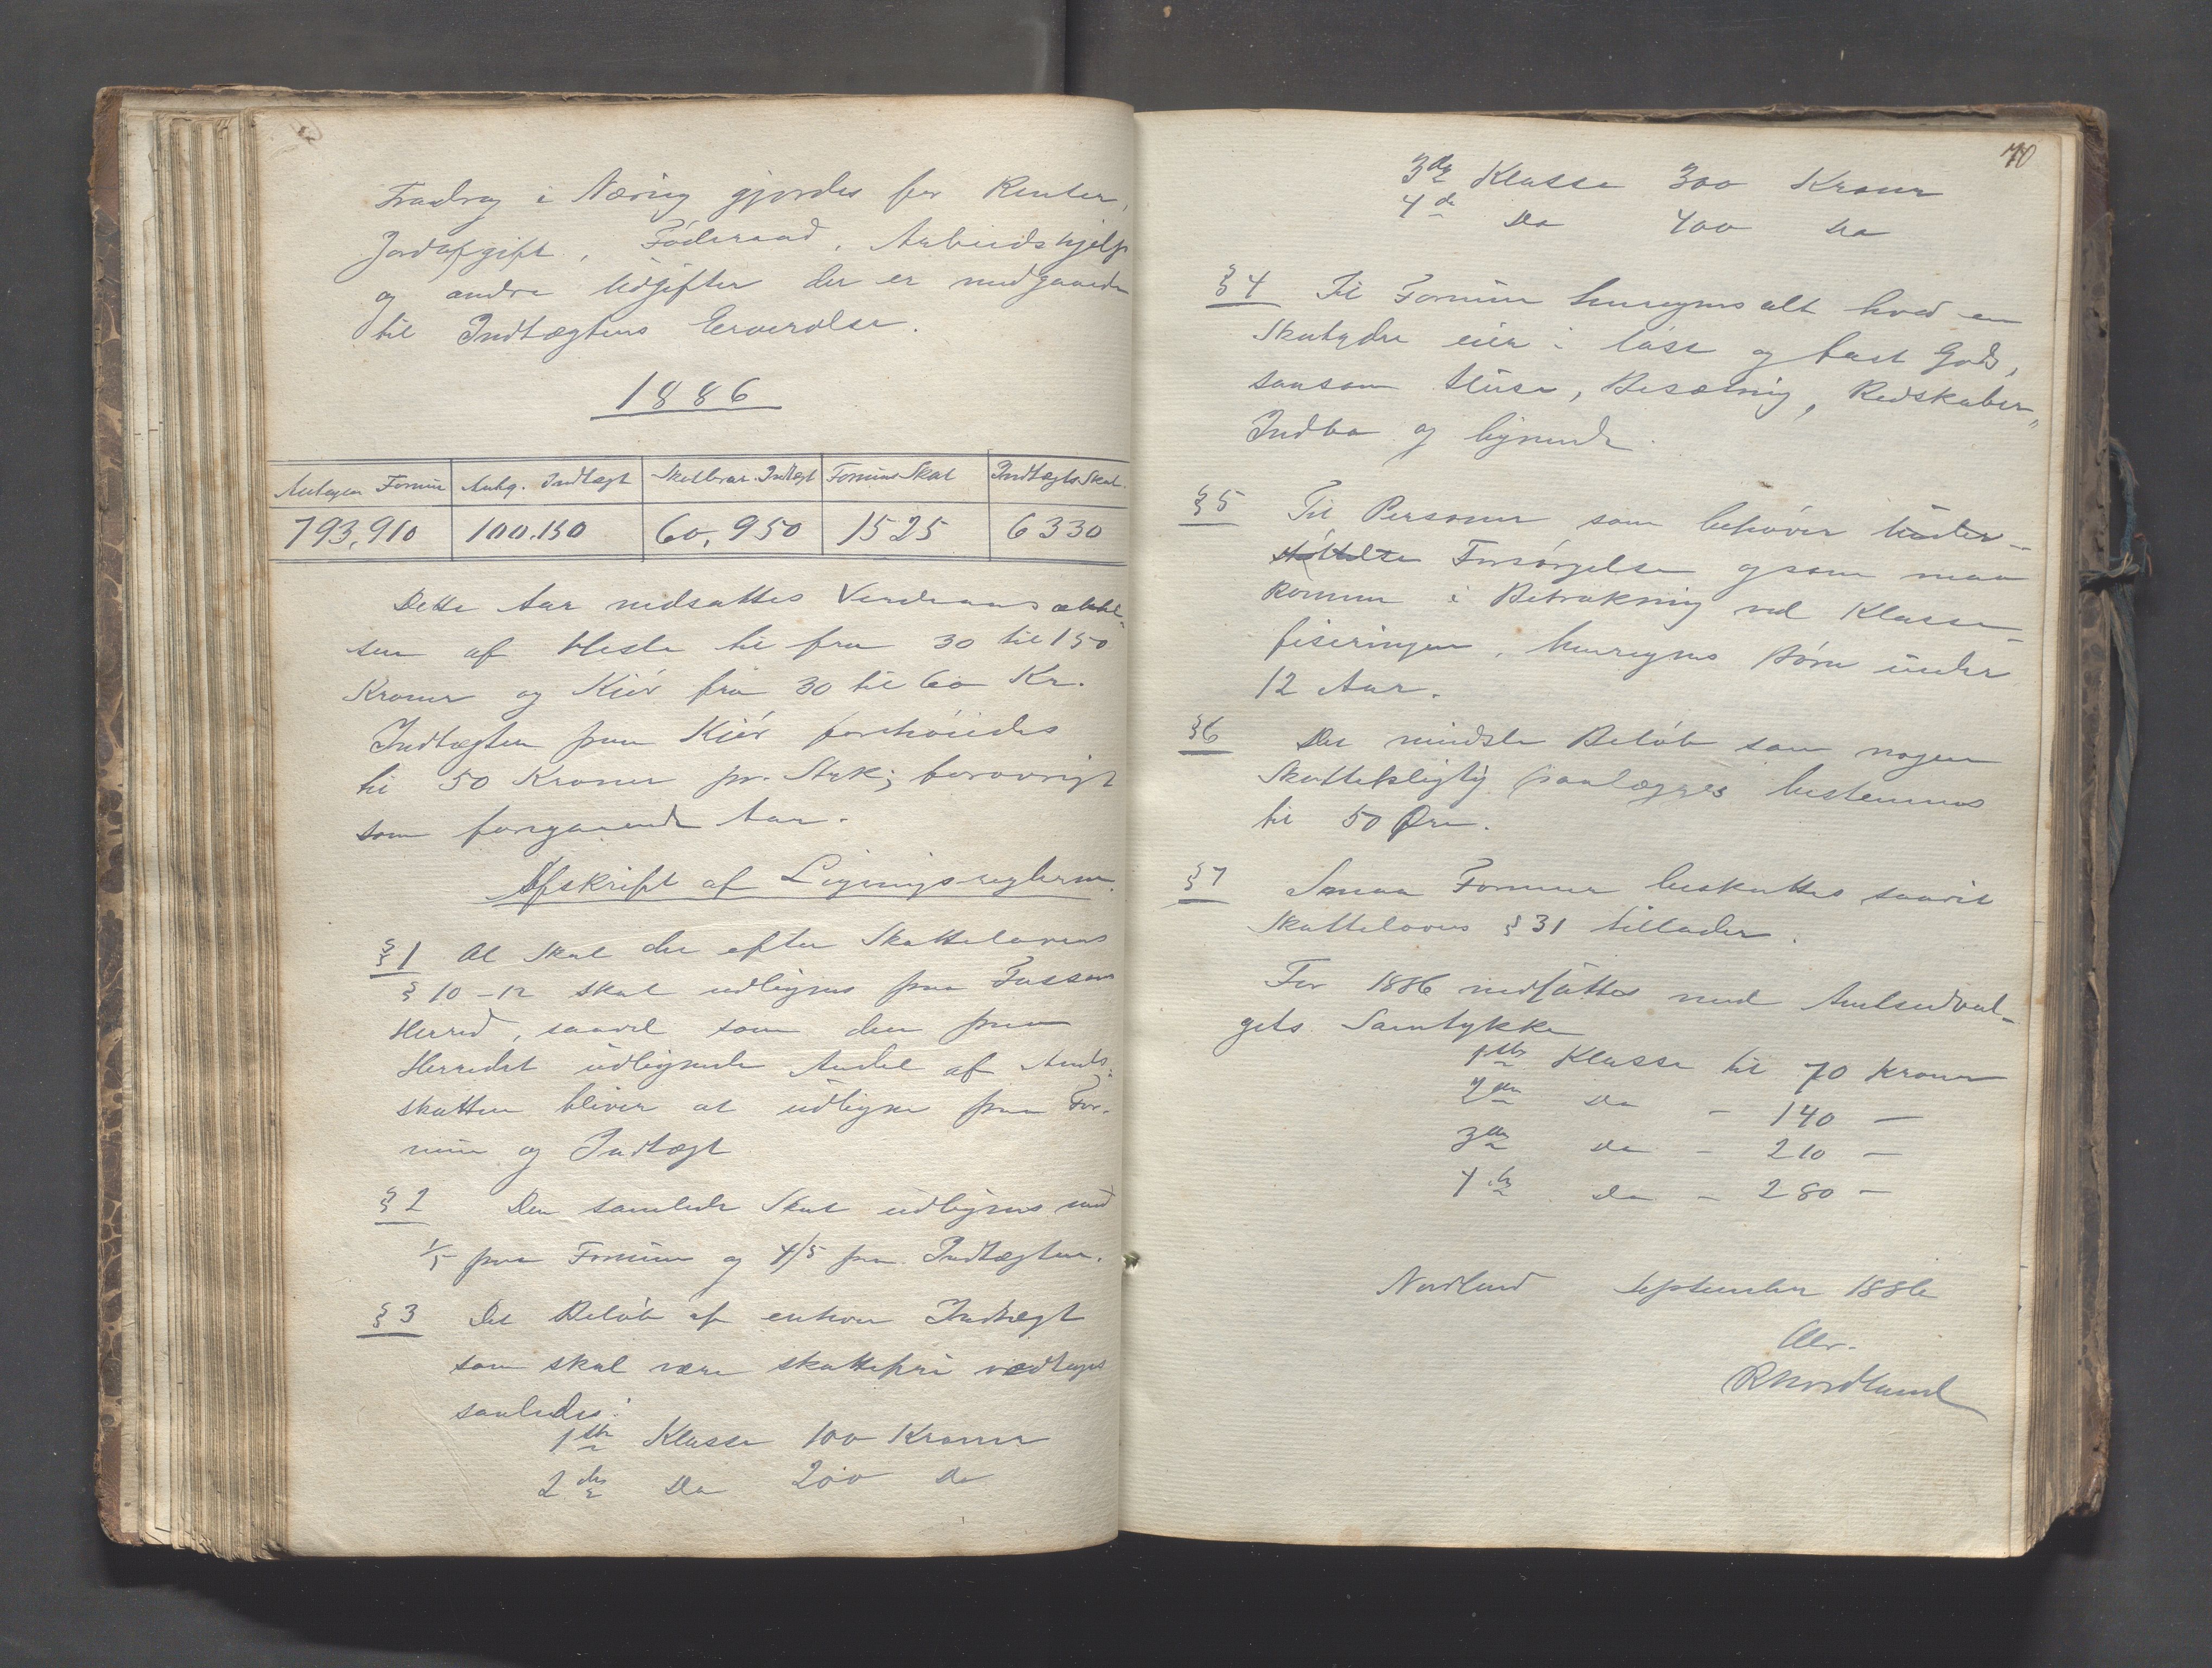 Fradrag i Næring gjordes for Renter,
Jordafgift, Föderaad, Arbeidshjelp
og andre Udgifter der er medgaaede
til Indtægtens Erverelse.
1886
Antagen Formue | Antag. Indtægt | Skatbar. Indtægt | Formues Skat | Indtægts Skat.
793,910 | 100.150 | 60,950 | 1525 | 6330
Dette Aar nedsattes Verdiansættel-
sen af Heste til fra 30 til 150
Kroner og Kiör fra 30 til 60 Kr.
Indtægten paa Kiör forhöiedes
til 50 Kroner pr. Stk; forövrigt
som foregaaende Aar.
Afskrift af Ligningsreglerne.
§ 1 Al Skat der efter Skattelovens
§ 10-12 skal udlignes paa Fossan
Herred, saavel som den paa
Herredet udlignede Andel af Amts-
skatten bliver at udligne paa For-
mue og Indtægt
§ 2 Den samlede Skat udlignes med
1/5 paa Formue og 4/5 paa Indtægten.
§ 3 Det Belöb af enhver Indtægt
som skal være skattefri vedtages
saaledes:
1ste Klasse 100 Kroner
2den Do 200 Do
70
3die Klasse 300 Kroner
4de Do 400 Do
§ 4 Til Formue henregnes alt hvad en
Skatyder eier i löst og fast Gods,
saasom Huse, Besætning, Redskaber,
Indbo og lignende.
§ 5 Til Personer som behöver Under-
stöttelse Forsörgelse og som maa
komme i Betrakning ved Klasse-
fiseringen, henregnes Börn under
12 Aar.
§ 6 Det mindste Belöb som nogen
Skattepligtig paalægges bestemmes
til 50 Øre.
§ 7 Smaa Formuer beskattes saavit
Skattelovens § 31 tillader.
For 1886 nedsattes med Amtsudval-
gets Samtykke
1ste Klasse til 70 Kroner
2den Do - 140 -
3die Do - 210 -
4de Do - 280 -
Nordlund September 1886
RNordlund